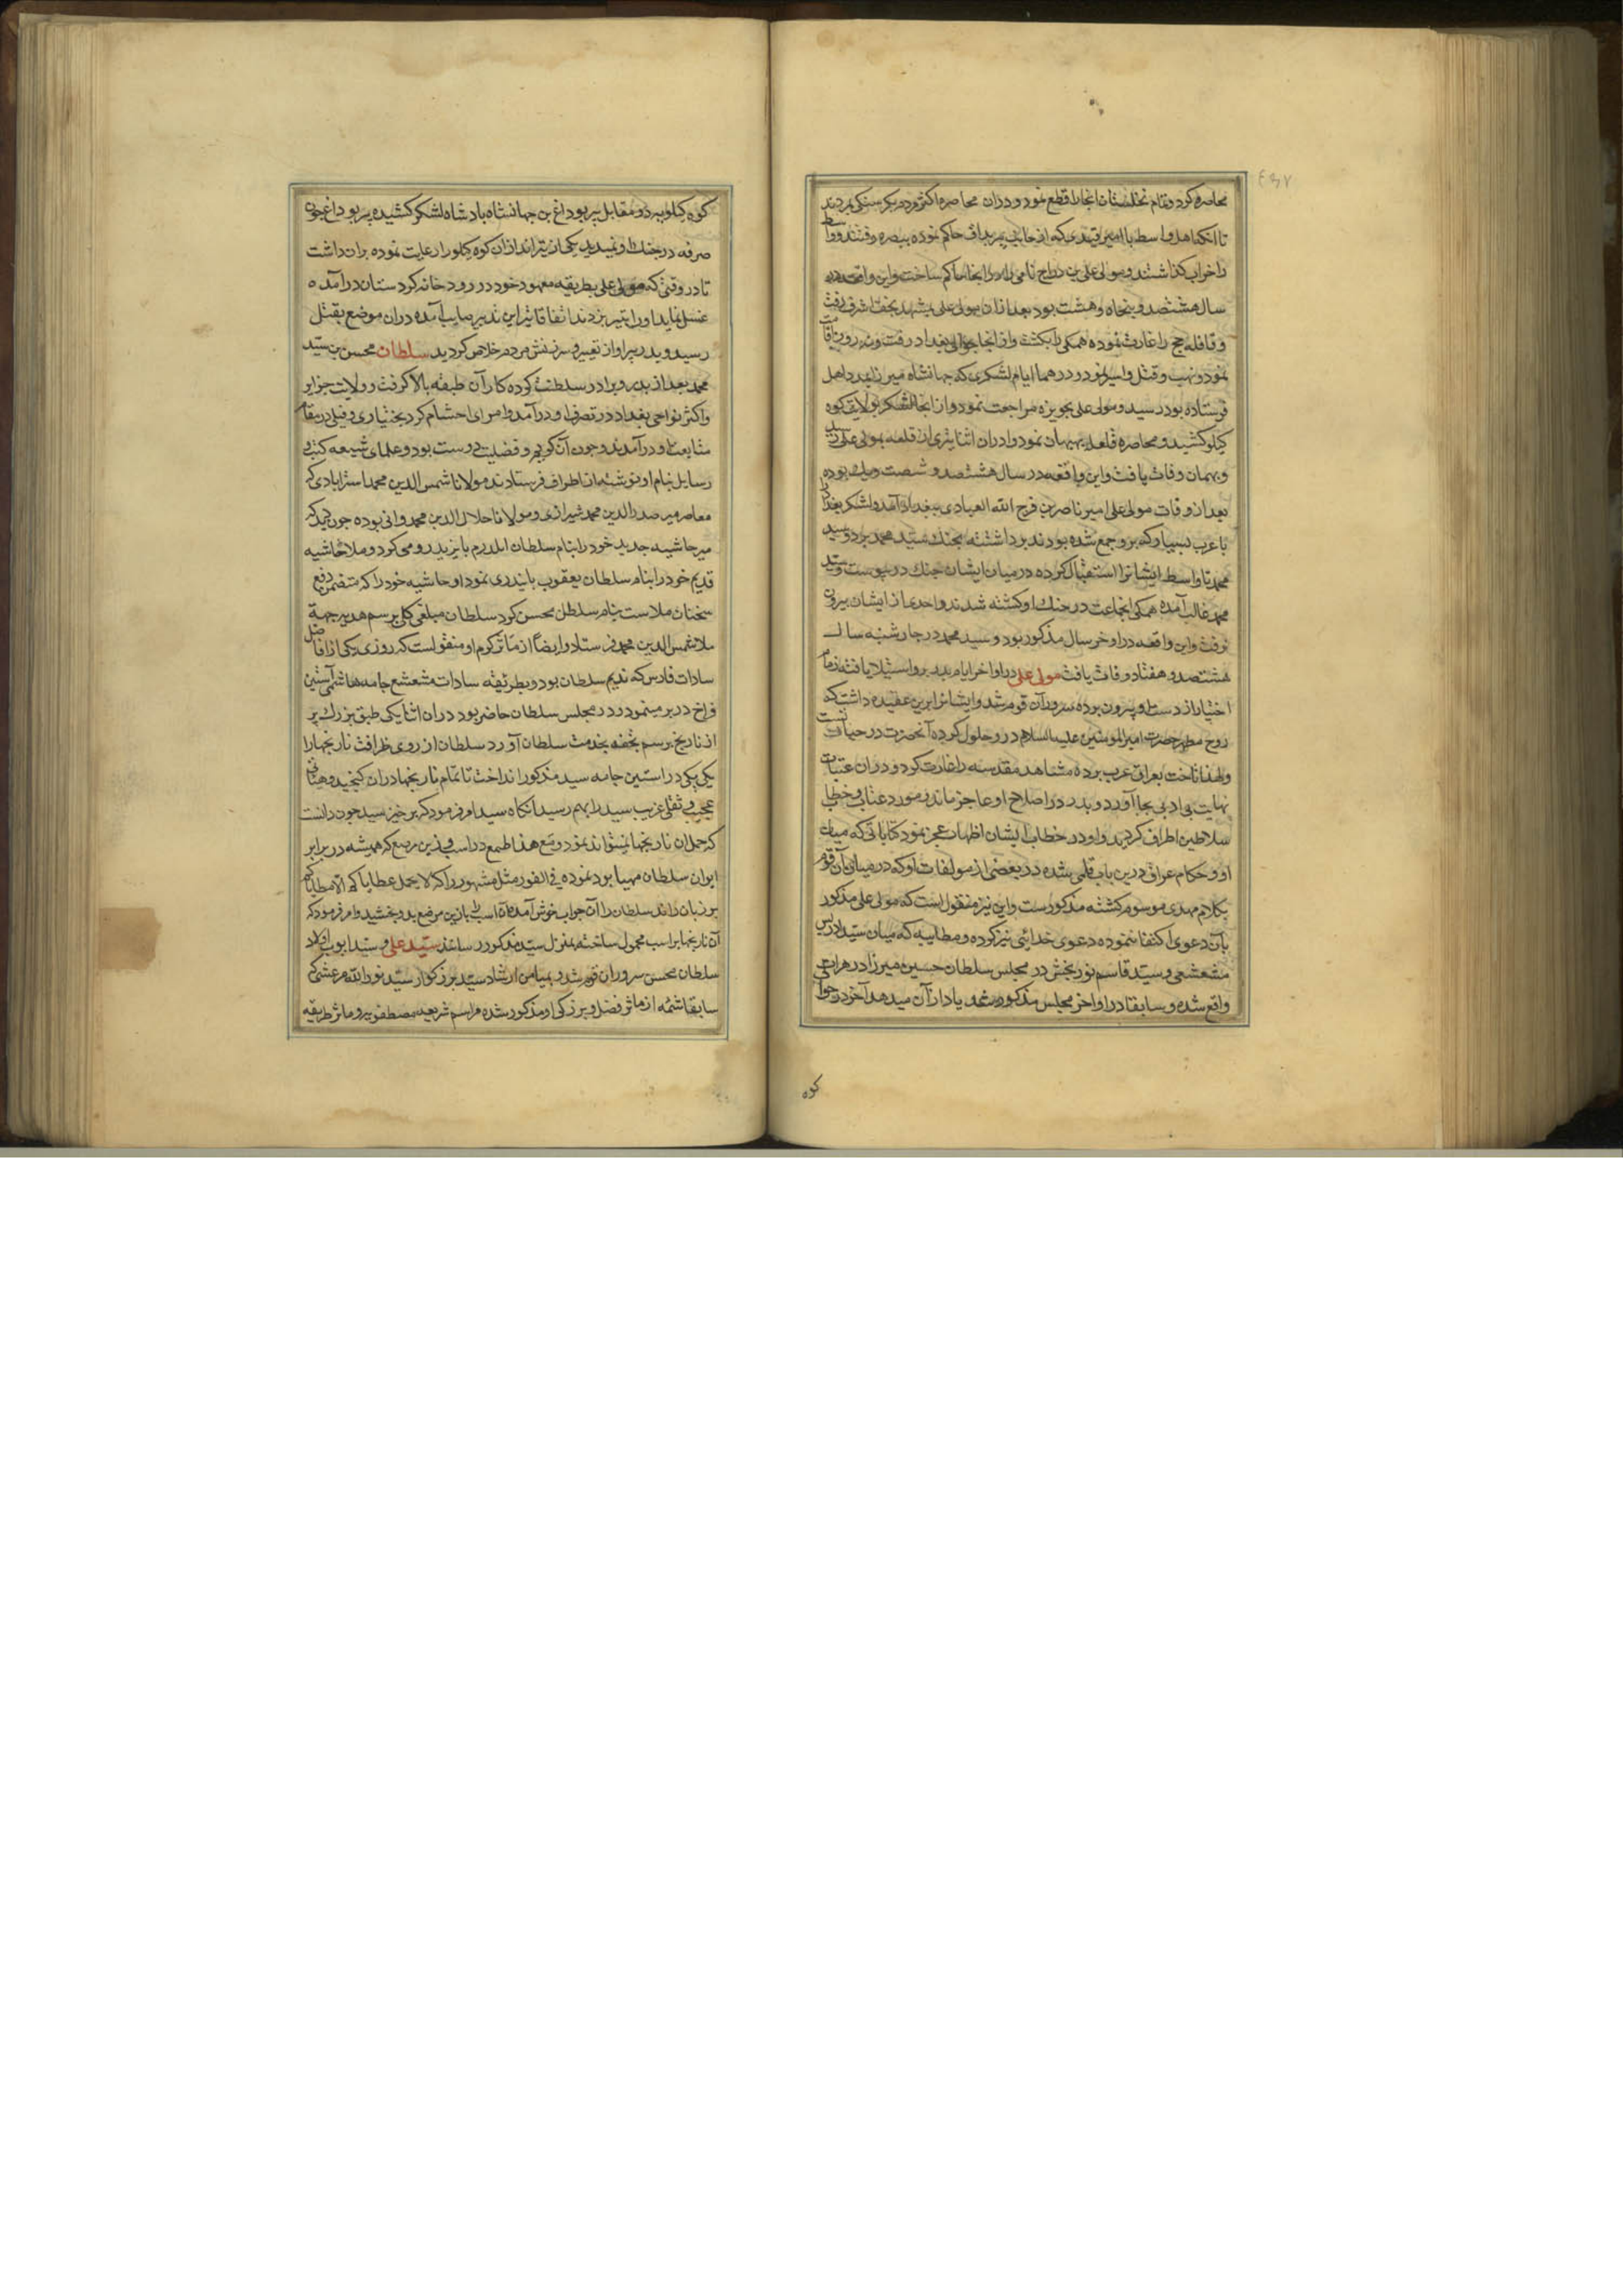 محاصره کرد و تمام نخلستان انجا را قطع نمود و دران محاصره اکثر مردم بکرسنکی مردند
تا انکه اهل واسط با امیر افندی که از جانب پیر بداق حاکم نموده ببصره رفتند و واسط
را خراب کذاشتند و مولی علی بن دراج نامی را در انجا حاکم ساخت و این واقعه در
سال هشتصد و پنجاه و هشت بود بعد ازان مولی علی بمشهد نجف اشرف رفت
و قافله حج را غارت نموده همکی را بکشت و از انجا بحوالی بغداد رفت و نه روز اقامت
نمود و نهب و قتل و اسر نمود و در هما ایام لشکری که جهانشاه میرزا بمدد اهل
فرستاده بود رسید و مولی علی بحویزه مراجعت نمود و از انجا لشکر بولایت کوه
کیلو کشید و محاصره قلعه بهبهان نمود و دران اثنا تیری از قلعه بمولی علی رسید
و بهمان وفات یافت و این واقعه در سال هشتصد و شصت و یک بوده
بعد از وفات مولی علی امیر ناصر بن فرج الله العبادی ببغداد آمد و لشکر بغداد را
با عرب بسیار که برو جمع شده بودند برداشته بجنک سید محمد برد و سید
محمد تا واسط ایشانرا استقبال کرده در میان ایشان جنک در پیوست و سید
محمد غالب آمده همکی انجماعت در جنک او کشته شدند و احدی از ایشان بیرون
نرفت و این واقعه در اواخر سال مذکور بود و سید محمد در چارشنبه سال
هشتصد و هفتاد وفات یافت مولی علی در اواخر ایام پدر برو استیلا یافته زمام
اختیار از دست او بیرون برده سرور آن قوم شد و ایشانرا برین عقیده داشت که
روح مطهر حضرت امیر المومنین علیه السلام در و حلول کرده آنحضرت در حیات است
و لهذا تاخت بعراق عرب برده مشاهد مقدسه را غارت کرد و دران عتبات
نهایت بی ادبی بجا آورد و پدر در اصلاح او عاجز ماند و مورد عتاب و خطاب
سلاطین اطراف کردید و او در خطاب ایشان اظهار عجز نمود کتاباتی که میان
او و حکام عراق درین باب قلمی شده در بعضی از مولفات او که در میان آن قوم
بکلام مهدی موسوم کشته مذکورست و این نیز منقول است که مولی علی مذکور
بان دعوی اکتفا ننموده دعوی خدائی نیز کرده و مطایبه که میان سید ادریس
مشعشعی و سید قاسم نوربخش در مجلس سلطان حسین میرزا در هرات
واقع شده و سابقا در اواخر مجلس مذکور شد یاد ازان میدهد آخر در حوالی
کوه
کوه کیلویه در مقابل پیر بوداغ بن جهانشاه بادشاه لشکر کشیده پیر بوداغ چون
صرفه در جنک او ندید یکی از تیراندازان کوه کیلو را رعایت نموده بران داشت
تا در وقتی که مولی علی بطریقه معهود خود در رود خانه کردستان درآمده
غسل نماید او را بتیر بزدند اتفاقا تیر این تدبیر صایب آمده دران موضع بقتل
رسید و پدر پیر او از تعییر و سرزنش مردم خلاص کردید سلطان محسن بن سید
محمد بعد از پدر و برادر سلطنت کرده کار آن طبقه بالا کرفت و ولایت جزایر
و اکثر نواحی بغداد در تصرف او درآمد و امرای احشام کرد بختیاری و فیلی در مقام
متابعت او درآمدند و چون آن کریم و فضیلت دوست بود و علمای شیعه کتب و
رسایل بنام او نوشته از اطراف فرستادند مولانا شمس الدین محمد استرابادی که
معاصر میر صدر الدین محمد شیرازی و مولانا جلال الدین محمد دوانی بوده چون دید که
میر حاشیه جدید خود را بنام سلطان ایلدرم بایزید رومی کرد و ملا حاشیه
قدیم خود را بنام سلطان یعقوب بایندری نمود او حاشیه خود را که متضمن دفع
سخنان ملاست بنام سلطان محسن کرد سلطان مبلغی کلی برسم هدیه بجهة
ملا شمس الدین محمد فرستاد و ایضا از مآثر کرم او منقولست که روزی یکی از افاضل
سادات فارس که ندیم سلطان بود و بطریقه سادات مشعشع جامه هاشمی آستین
فراخ در بر مینمود در مجلس سلطان حاضر بود دران اثنا یکی طبق بزرک پر
از نارنج برسم تحفه بخدمت سلطان آورد سلطان از روی ظرافت نارنجها را
یکی یکی در آستین جامه سید مذکور انداخت تا تمام نارنجها دران کنجید و هیأتی
عجیب و ثقلی غریب سید را بهم رسید آنکاه سید امر فرمود که برخیز سید چون دانست
که حمل ان نارنجها نمیتواند نمود و مع هذا طمع در اسب و زین مرصع که همیشه در برابر
ایوان سلطان مهیا بود نموده فی الفور مثل مشهور را که لا یحمل عطایاکم الا مطایاکم
بر زبان راند سلطان را آن جواب خوش آمده آن اسب را با زین مرصع بدو بخشید و امر فرمود که
آن نارنجها بر اسب محمول ساخته بمنزل سید مذکور رسانند سید علی و سید ایوب اولاد
سلطان محسن سروران قوم شدند و بمیامن ارشاد سید بزرکوار سید نورالله مرعشی که
سابقا شمه از ماثر فضل و بزرکی او مذکور شده مراسم شریعه مصطفویه و ماثر طریقه